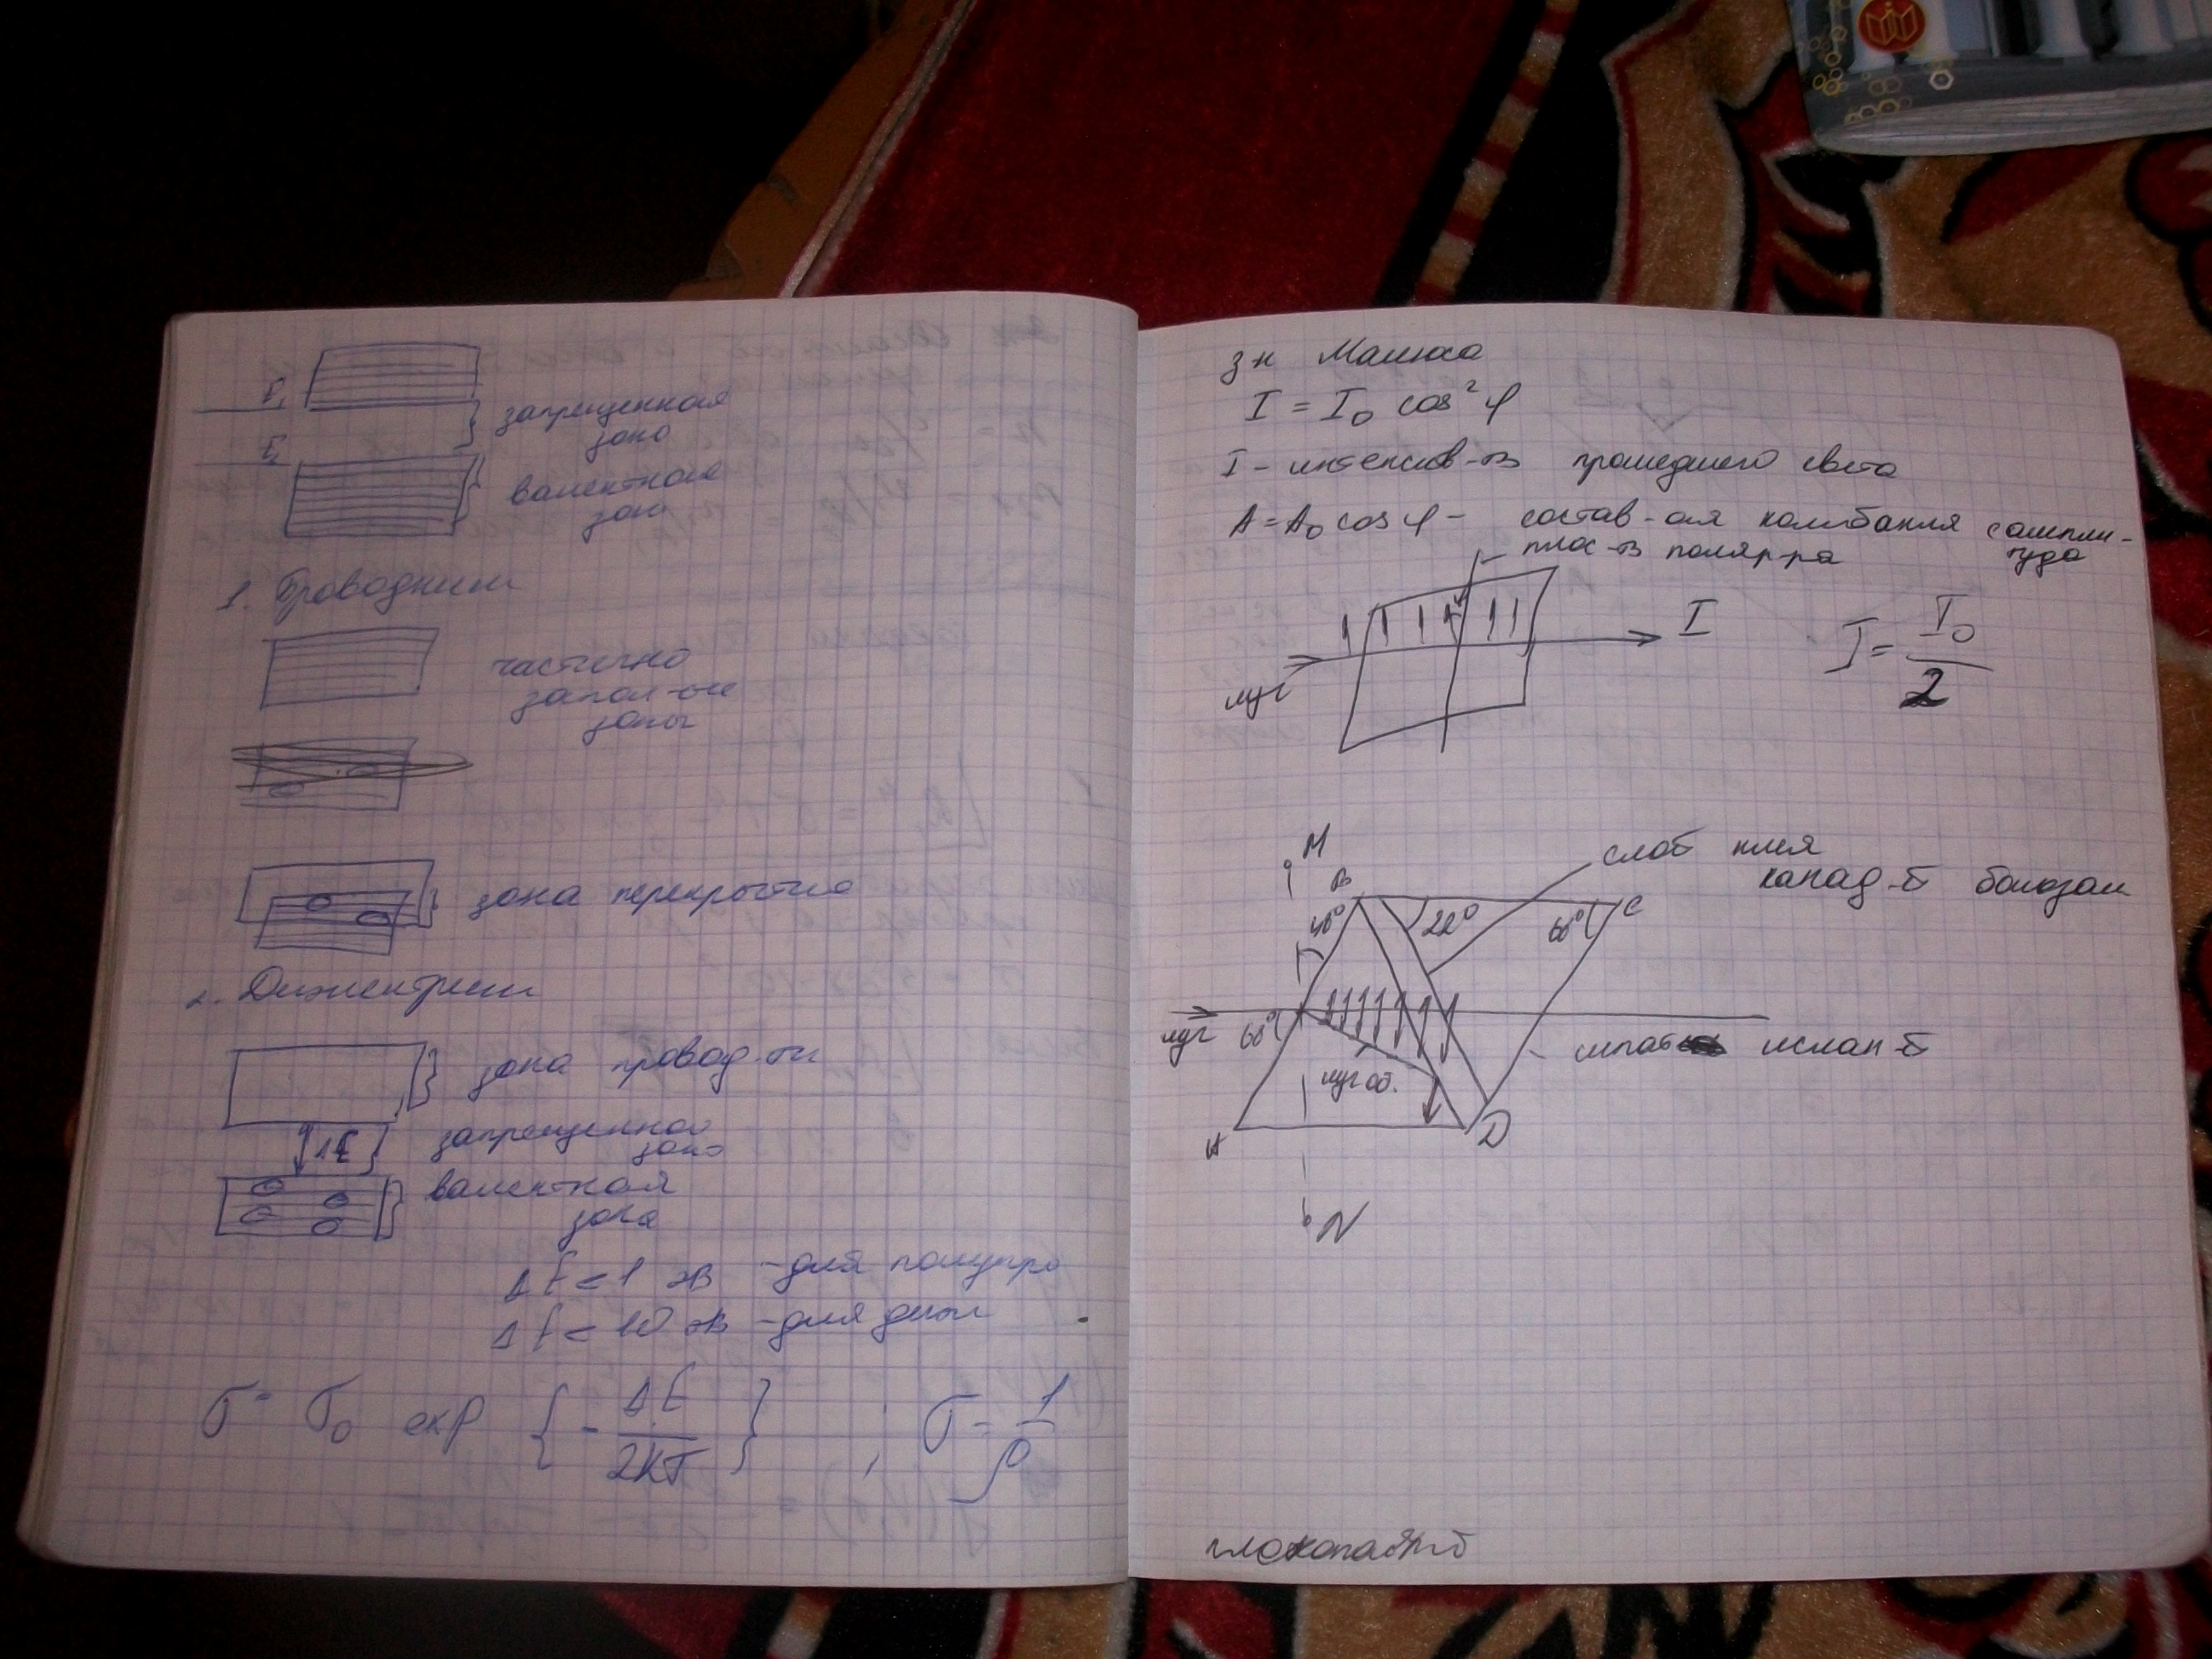 E₁
запрещенная
зона
E₂
валентная
зона
1. Проводники
частично
запол-ые
зоны
зона перекрытия
2. Диэлектрики
зона провод-ти
запрещенная
зона
ΔE
валентная
зона
ΔE < 1 эВ - для полупро
ΔE < 10 эВ - для диэл
σ = σ₀ exp { - ΔE / 2kT } ; σ = 1 / ρ
з-н Малюса
I = I₀ cos² φ
I - интенсив-ть прошедшего света
A = A₀ cos φ - состав-ая колебания с ампли-
туда
плос-ть поляр-ра
луч
I
I = I₀ / 2
M
B
C
22°
слой клея
канад-й бальзам
луч
68°
луч об.
шпат исланд-й
A
D
N